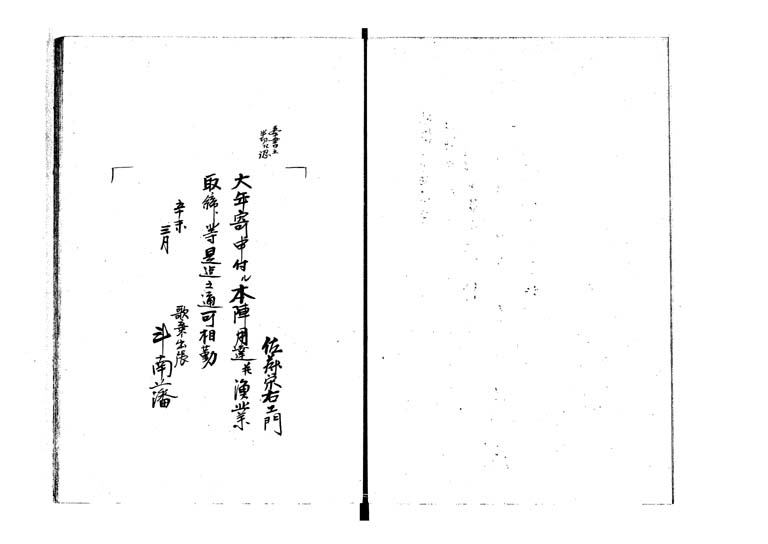 奉書上
半切ニ認
佐藤栄右エ門
大年寄申付ル本陣用達并漁業
取締等是迄之通可相勤
辛未
三月
歌棄出張
斗南藩